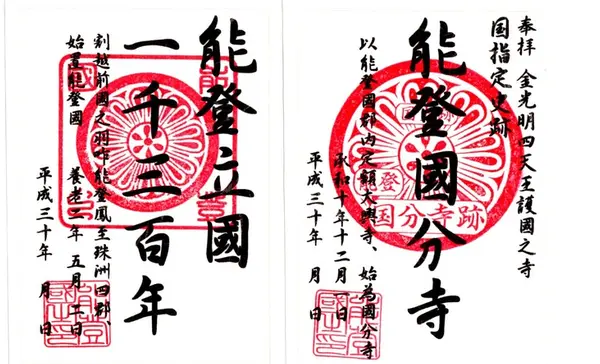 奉拝 金光明四天王護國之寺
国指定史跡
能登國分寺
以能登國郡内定額大興寺、始為國分寺
承和十年十二月一日
平成三十年 月 日
能登
国分寺跡
能登立國
一千三百年
割越前國之羽咋能登鳳至珠洲四郡、
始置能登國 養老二年 五月二日
平成三十年 月 日